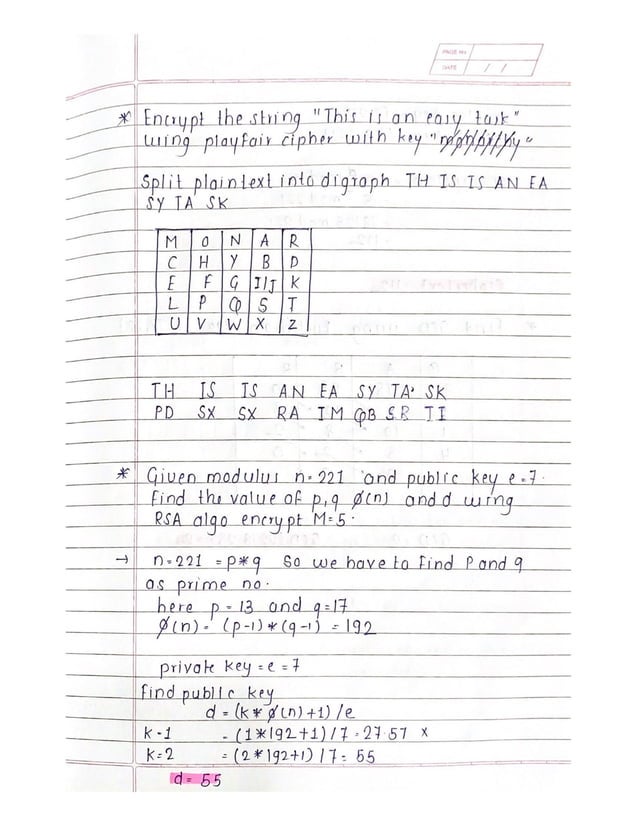 PAGE No
DATE / /
* Encrypt the string "This is an easy task"
using playfair cipher with key "
Split plaintext into digraph TH IS IS AN EA
SY TA SK
M O N A R
C H Y B D
E F G I/J K
L P Q S T
U V W X Z
TH IS IS AN EA SY TA SK
PD SX SX RA IM QB SR TI
* Given modulus n=221 and public key e=7.
Find the value of p,q ø(n) and d using
RSA algo encrypt M=5.
→ n=221 = p*q So we have to find P and q
as prime no.
here p=13 and q=17
ø(n) = (p-1)*(q-1) = 192
private key = e = 7
find public key
d = (k*ø(n)+1)/e
k-1 = (1*192+1)/7=27.57 x
k=2 = (2*192+1)/7= 55
d= 55